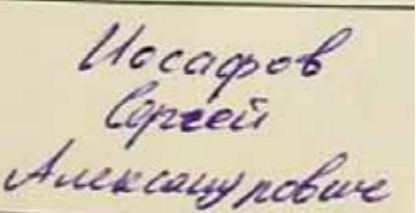 Иосафов
Сергей
Александрович